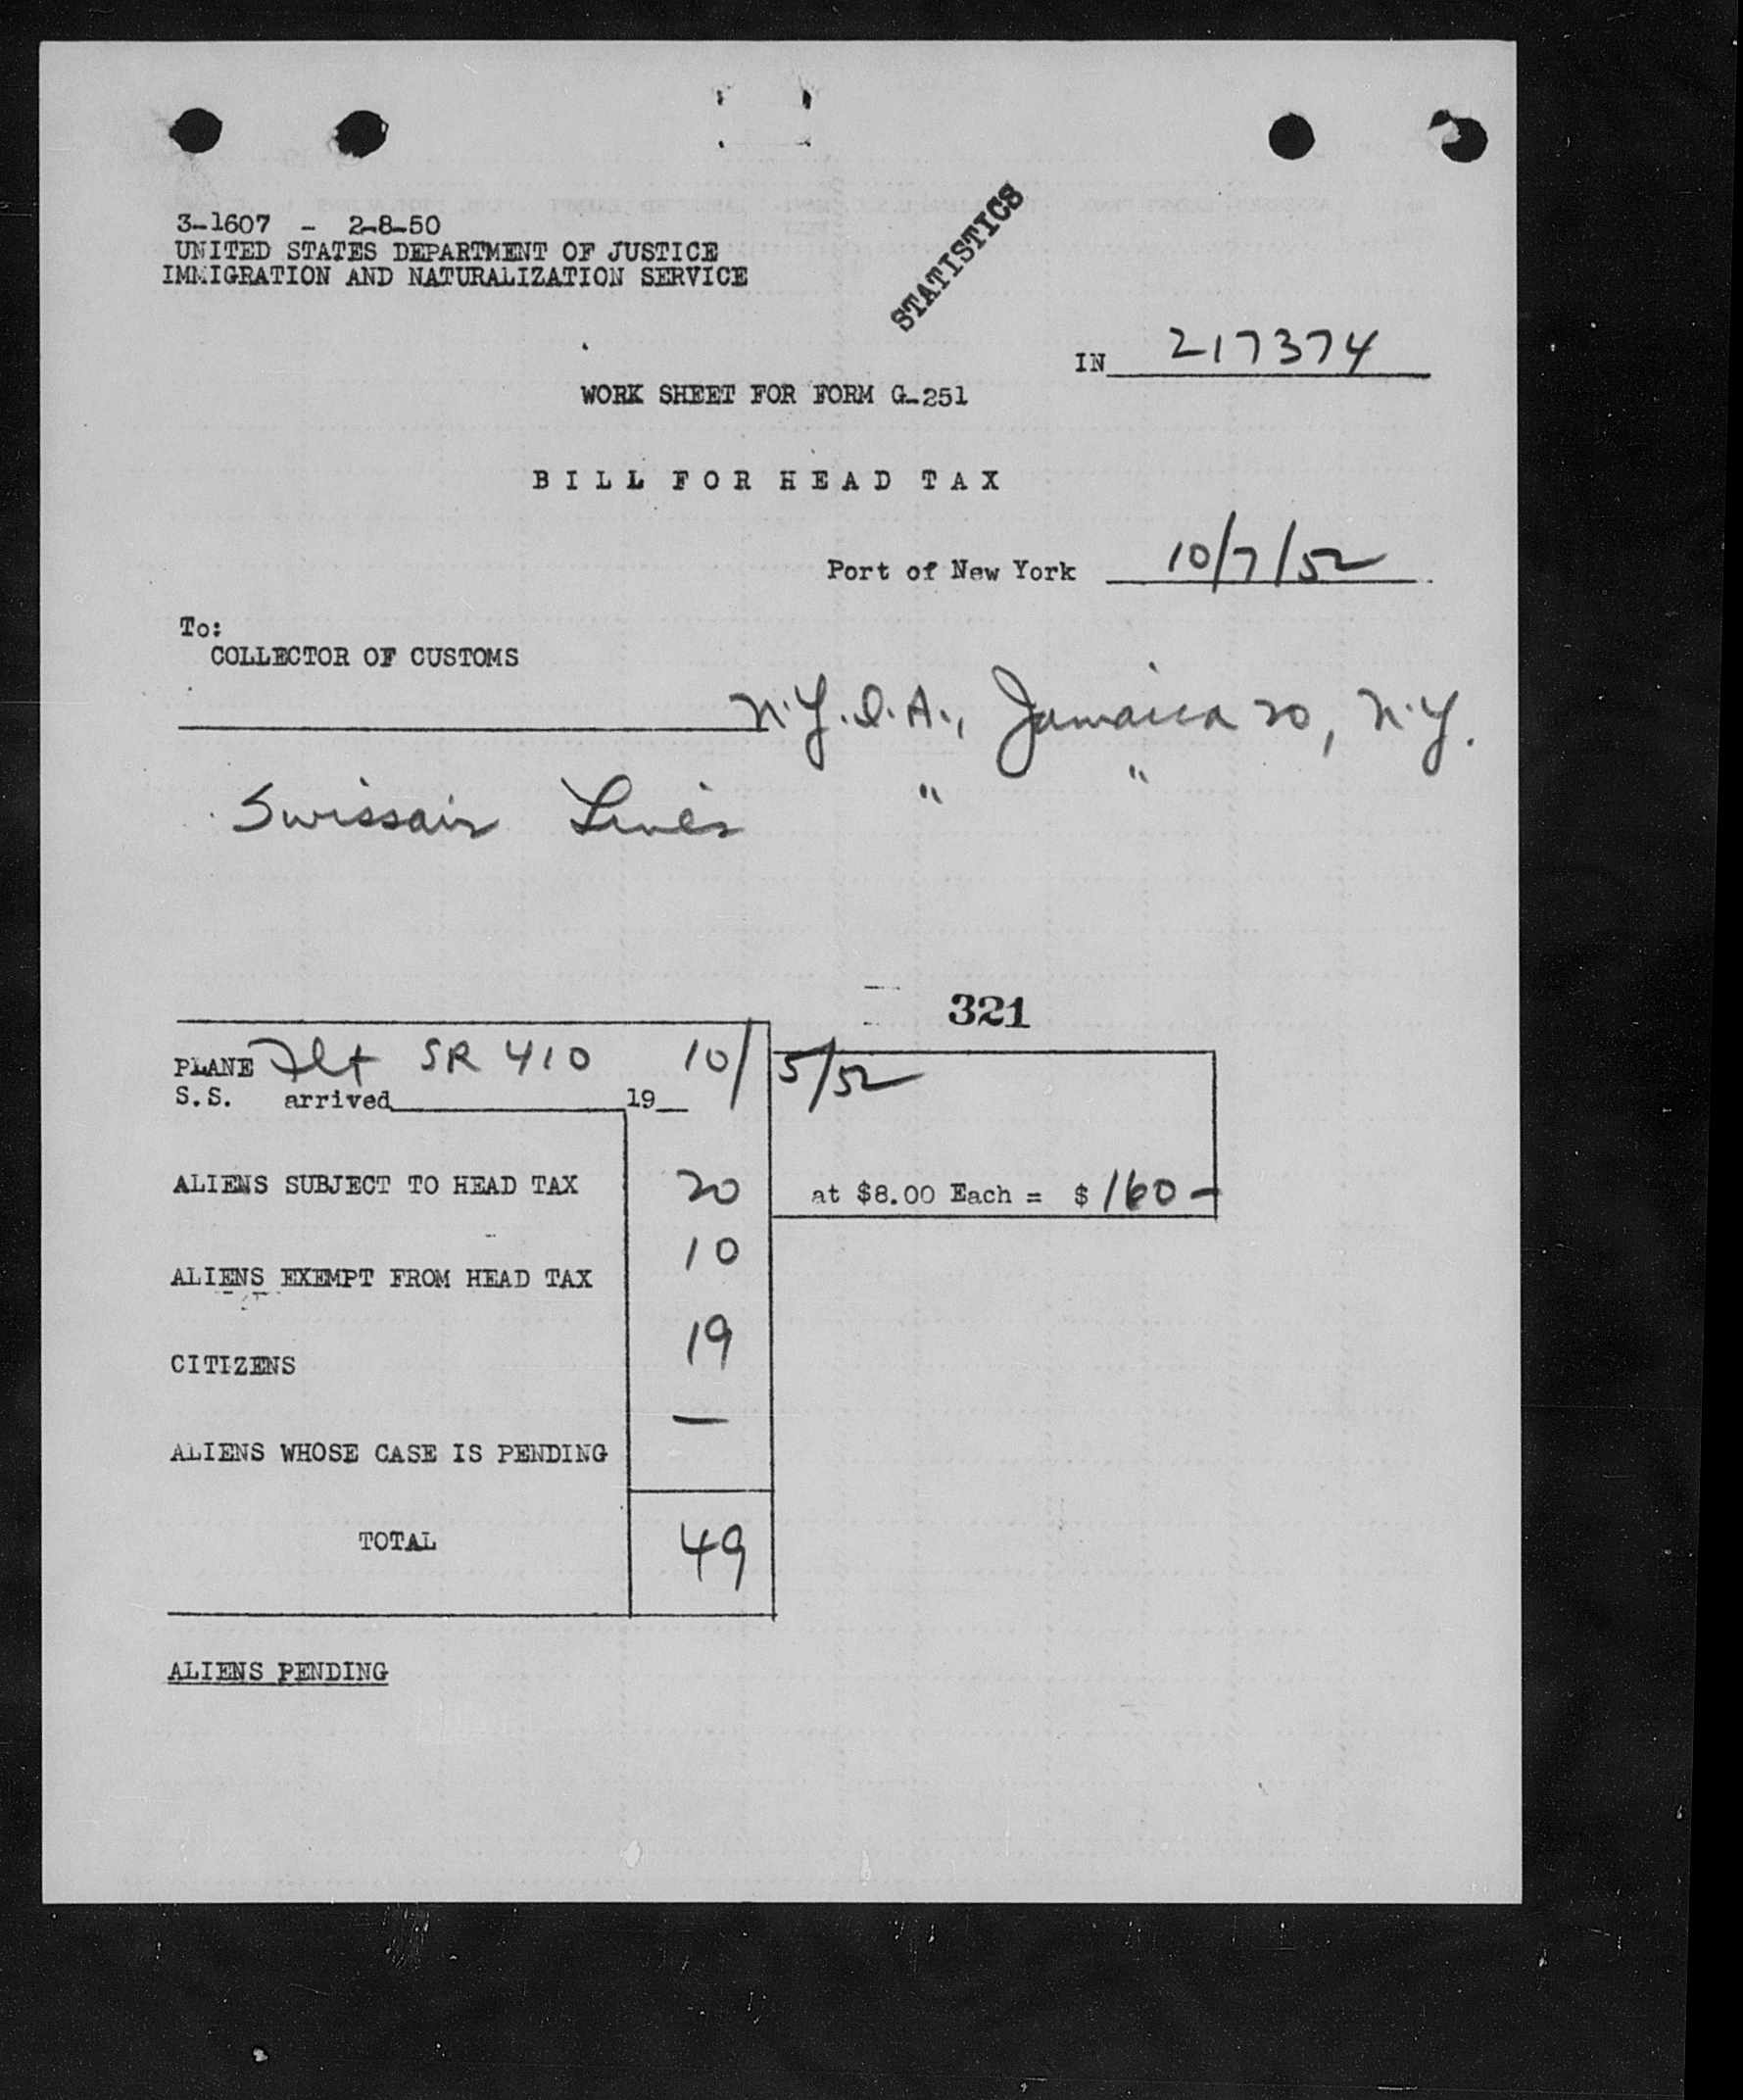 3-1607 - 2-8-50
UNITED STATES DEPARTMENT OF JUSTICE
IMMIGRATION AND NATURALIZATION SERVICE
STATISTICS
IN 217374
WORK SHEET FOR FORM G-251
BILL FOR HEAD TAX
Port of New York 10/7/52
To:
COLLECTOR OF CUSTOMS
N.Y.I.A., Jamaica 20, N.Y.
Swissair Lines " "
321
PLANE Flt SR 410 10/5/52
S.S. arrived 19
ALIENS SUBJECT TO HEAD TAX 20 at $8.00 Each = $ 160-
ALIENS EXEMPT FROM HEAD TAX 10
CITIZENS 19
ALIENS WHOSE CASE IS PENDING —
TOTAL 49
ALIENS PENDING